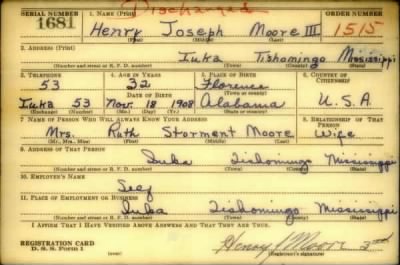 Discharged
SERIAL NUMBER 1. NAME (Print) ORDER NUMBER
1681 Henry Joseph Moore III 1515
(First) (Middle) (Last)
2. ADDRESS (Print)
Iuka Tishomingo Mississippi
(Number and street or R. F. D. number) (Town) (County) (State)
3. TELEPHONE 4. AGE IN YEARS 5. PLACE OF BIRTH 6. COUNTRY OF CITIZENSHIP
53 32 Florence
DATE OF BIRTH (Town or county)
Iuka 53 Nov. 18 1908 Alabama U.S.A
(Exchange) (Number) (Mo.) (Day) (Yr.) (State or country)
7. NAME OF PERSON WHO WILL ALWAYS KNOW YOUR ADDRESS 8. RELATIONSHIP OF THAT PERSON
Mrs. Ruth Storment Moore Wife
(Mr., Mrs., Miss) (First) (Middle) (Last)
9. ADDRESS OF THAT PERSON
Iuka Tishomingo Mississippi
(Number and street or R. F. D. number) (Town) (County) (State)
10. EMPLOYER'S NAME
Self
11. PLACE OF EMPLOYMENT OR BUSINESS
Iuka Tishomingo Mississippi
(Number and street or R. F. D. number) (Town) (County) (State)
I AFFIRM THAT I HAVE VERIFIED ABOVE ANSWERS AND THAT THEY ARE TRUE.
REGISTRATION CARD
D. S. S. Form 1
Henry J Moore
(Registrant's signature)